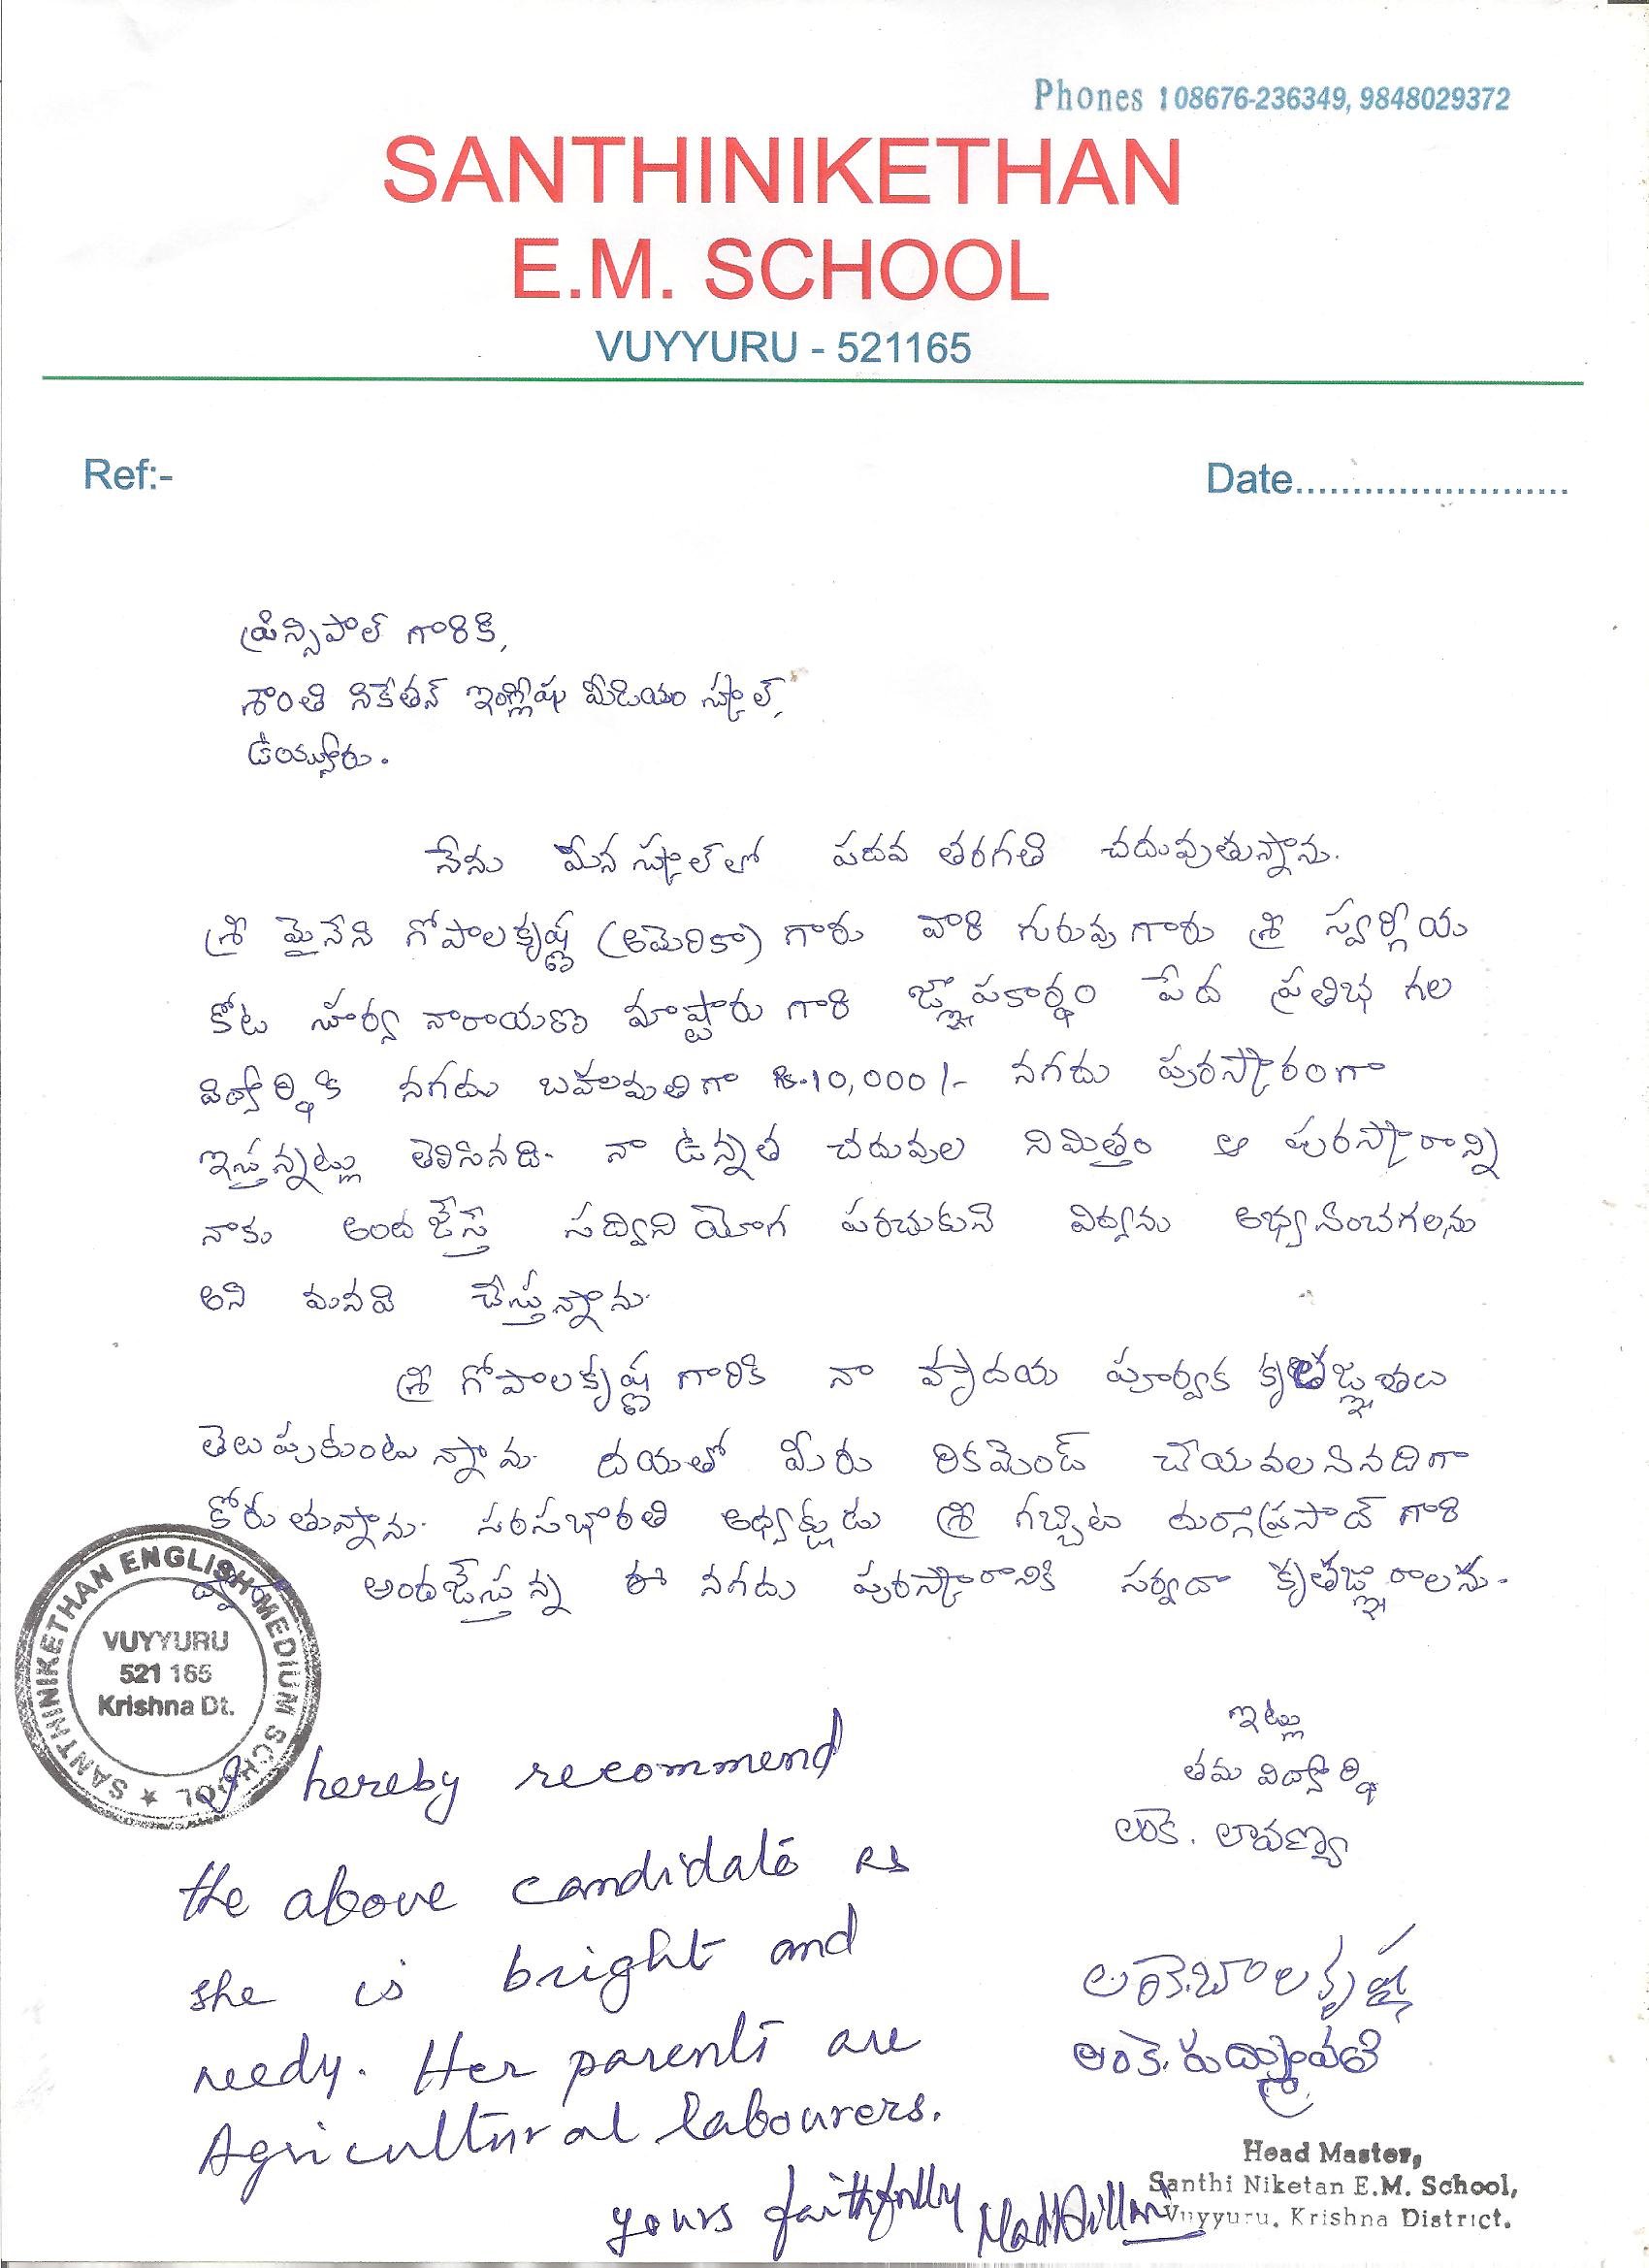 Phones : 08676-236349, 9848029372
SANTHINIKETHAN
E.M. SCHOOL
VUYYURU - 521165
Ref:-
Date........................
ప్రిన్సిపాల్ గారికి,
శాంతి నికేతన్ ఇంగ్లీషు మీడియం స్కూల్,
ఉయ్యూరు.
నేను మీన స్కూల్‌లో పదవ తరగతి చదువుతున్నాను.
శ్రీ మైనేని గోపాలకృష్ణ (అమెరికా) గారు వారి గురువు గారు శ్రీ స్వర్గీయ
కోట సూర్య నారాయణ మాష్టారు గారి జ్ఞాపకార్థం పేద ప్రతిభ గల
విద్యార్థికి నగదు బహుమతిగా Rs.10,000/- నగదు పురస్కారంగా
ఇస్తున్నట్లు తెలిసినది. నా ఉన్నత చదువుల నిమిత్తం ఆ పురస్కారాన్ని
నాకు అందజేస్తే సద్వినియోగ పరచుకుని విద్యను అభ్యసించగలను
అని మనవి చేస్తున్నాను.
శ్రీ గోపాలకృష్ణ గారికి నా హృదయ పూర్వక కృతజ్ఞతలు
తెలుపుకుంటున్నాను. దయతో మీరు రికమెండ్ చేయవలసినదిగా
కోరుతున్నాను. సరసభారతి అధ్యక్షుడు శ్రీ గబ్బిట దుర్గాప్రసాద్ గారి
ద్వారా అందజేస్తున్న ఈ నగదు పురస్కారానికి సర్వదా కృతజ్ఞురాలను.
SANTHINIKETHAN ENGLISH MEDIUM SCHOOL
VUYYURU
521 165
Krishna Dt.
ఇట్లు
తమ విద్యార్థి
లంకె. లావణ్య
I hereby recommend
the above candidate as
she is bright and
needy. Her parents are
Agricultural labourers.
yours faithfully
లంకె.బాలకృష్ణ
లంకె.
Head Master,
Santhi Niketan E.M. School,
Vuyyuru. Krishna District.